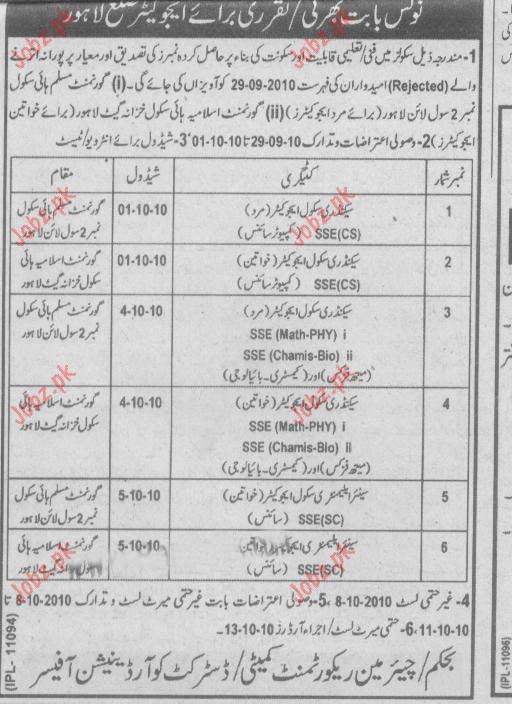 نوٹس بابت بھرتی/تقرری برائے ایجوکیٹرز ضلع لاہور
1- مندرجہ ذیل سکولز میں فنی/تعلیمی قابلیت اور سکونت کی بناء پر حاصل کردہ نمبرز کی تصدیق اور معیار پر پورا نہ اترنے
والے (Rejected) امیدواران کی فہرست 2010-09-29 کو آویزاں کی جائے گی۔ (i) گورنمنٹ مسلم ہائی سکول
نمبر 2 سول لائن لاہور (برائے مرد ایجوکیٹرز) (ii) گورنمنٹ اسلامیہ ہائی سکول خزانہ گیٹ لاہور (برائے خواتین
ایجوکیٹرز) 2- وصولی اعتراضات و تدارک 10-09-29 تا 10-10-01 3- شیڈول برائے انٹرویو/ٹیسٹ
نمبر شمار کٹیگری شیڈول مقام
1 سیکنڈری سکول ایجوکیٹر (مرد) 01-10-10 گورنمنٹ مسلم ہائی سکول
SSE(CS) (کمپیوٹر سائنس) نمبر 2 سول لائن لاہور
2 سیکنڈری سکول ایجوکیٹر (خواتین) 01-10-10 گورنمنٹ اسلامیہ ہائی
SSE(CS) (کمپیوٹر سائنس) سکول خزانہ گیٹ لاہور
3 سیکنڈری سکول ایجوکیٹر (مرد) 4-10-10 گورنمنٹ مسلم ہائی سکول
نمبر 2 سول لائن لاہور
SSE (Math-PHY) i
SSE (Chamis-Bio) ii
(میتھ فزکس) اور (کیمسٹری۔بائیالوجی)
4 سیکنڈری سکول ایجوکیٹر (خواتین) 4-10-10 گورنمنٹ اسلامیہ ہائی
سکول خزانہ گیٹ لاہور
SSE (Math-PHY) i
SSE (Chamis-Bio) ii
(میتھ فزکس) اور (کیمسٹری۔بائیالوجی)
5 سینئر ایلیمنٹری سکول ایجوکیٹر (خواتین) 5-10-10 گورنمنٹ مسلم ہائی سکول
SSE(SC) (سائنس) نمبر 2 سول لائن لاہور
6 سینئر ایلیمنٹری 5-10-10 گورنمنٹ اسلامیہ ہائی
SSE(SC) (سائنس) گیٹ لاہور
4- غیر حتمی لسٹ 2010-10-8 5- وصولی اعتراضات بابت غیر حتمی میرٹ لسٹ و تدارک 2010-10-8 تا
11-10-10 6- حتمی میرٹ لسٹ/اجراء آرڈرز 10-10-13۔
بحکم/چیئرمین ریکورٹمنٹ کمیٹی/ڈسٹرکٹ کوآرڈینیشن آفیسر
(IPL-11094)
(IPL-11096)
Jobz.pk